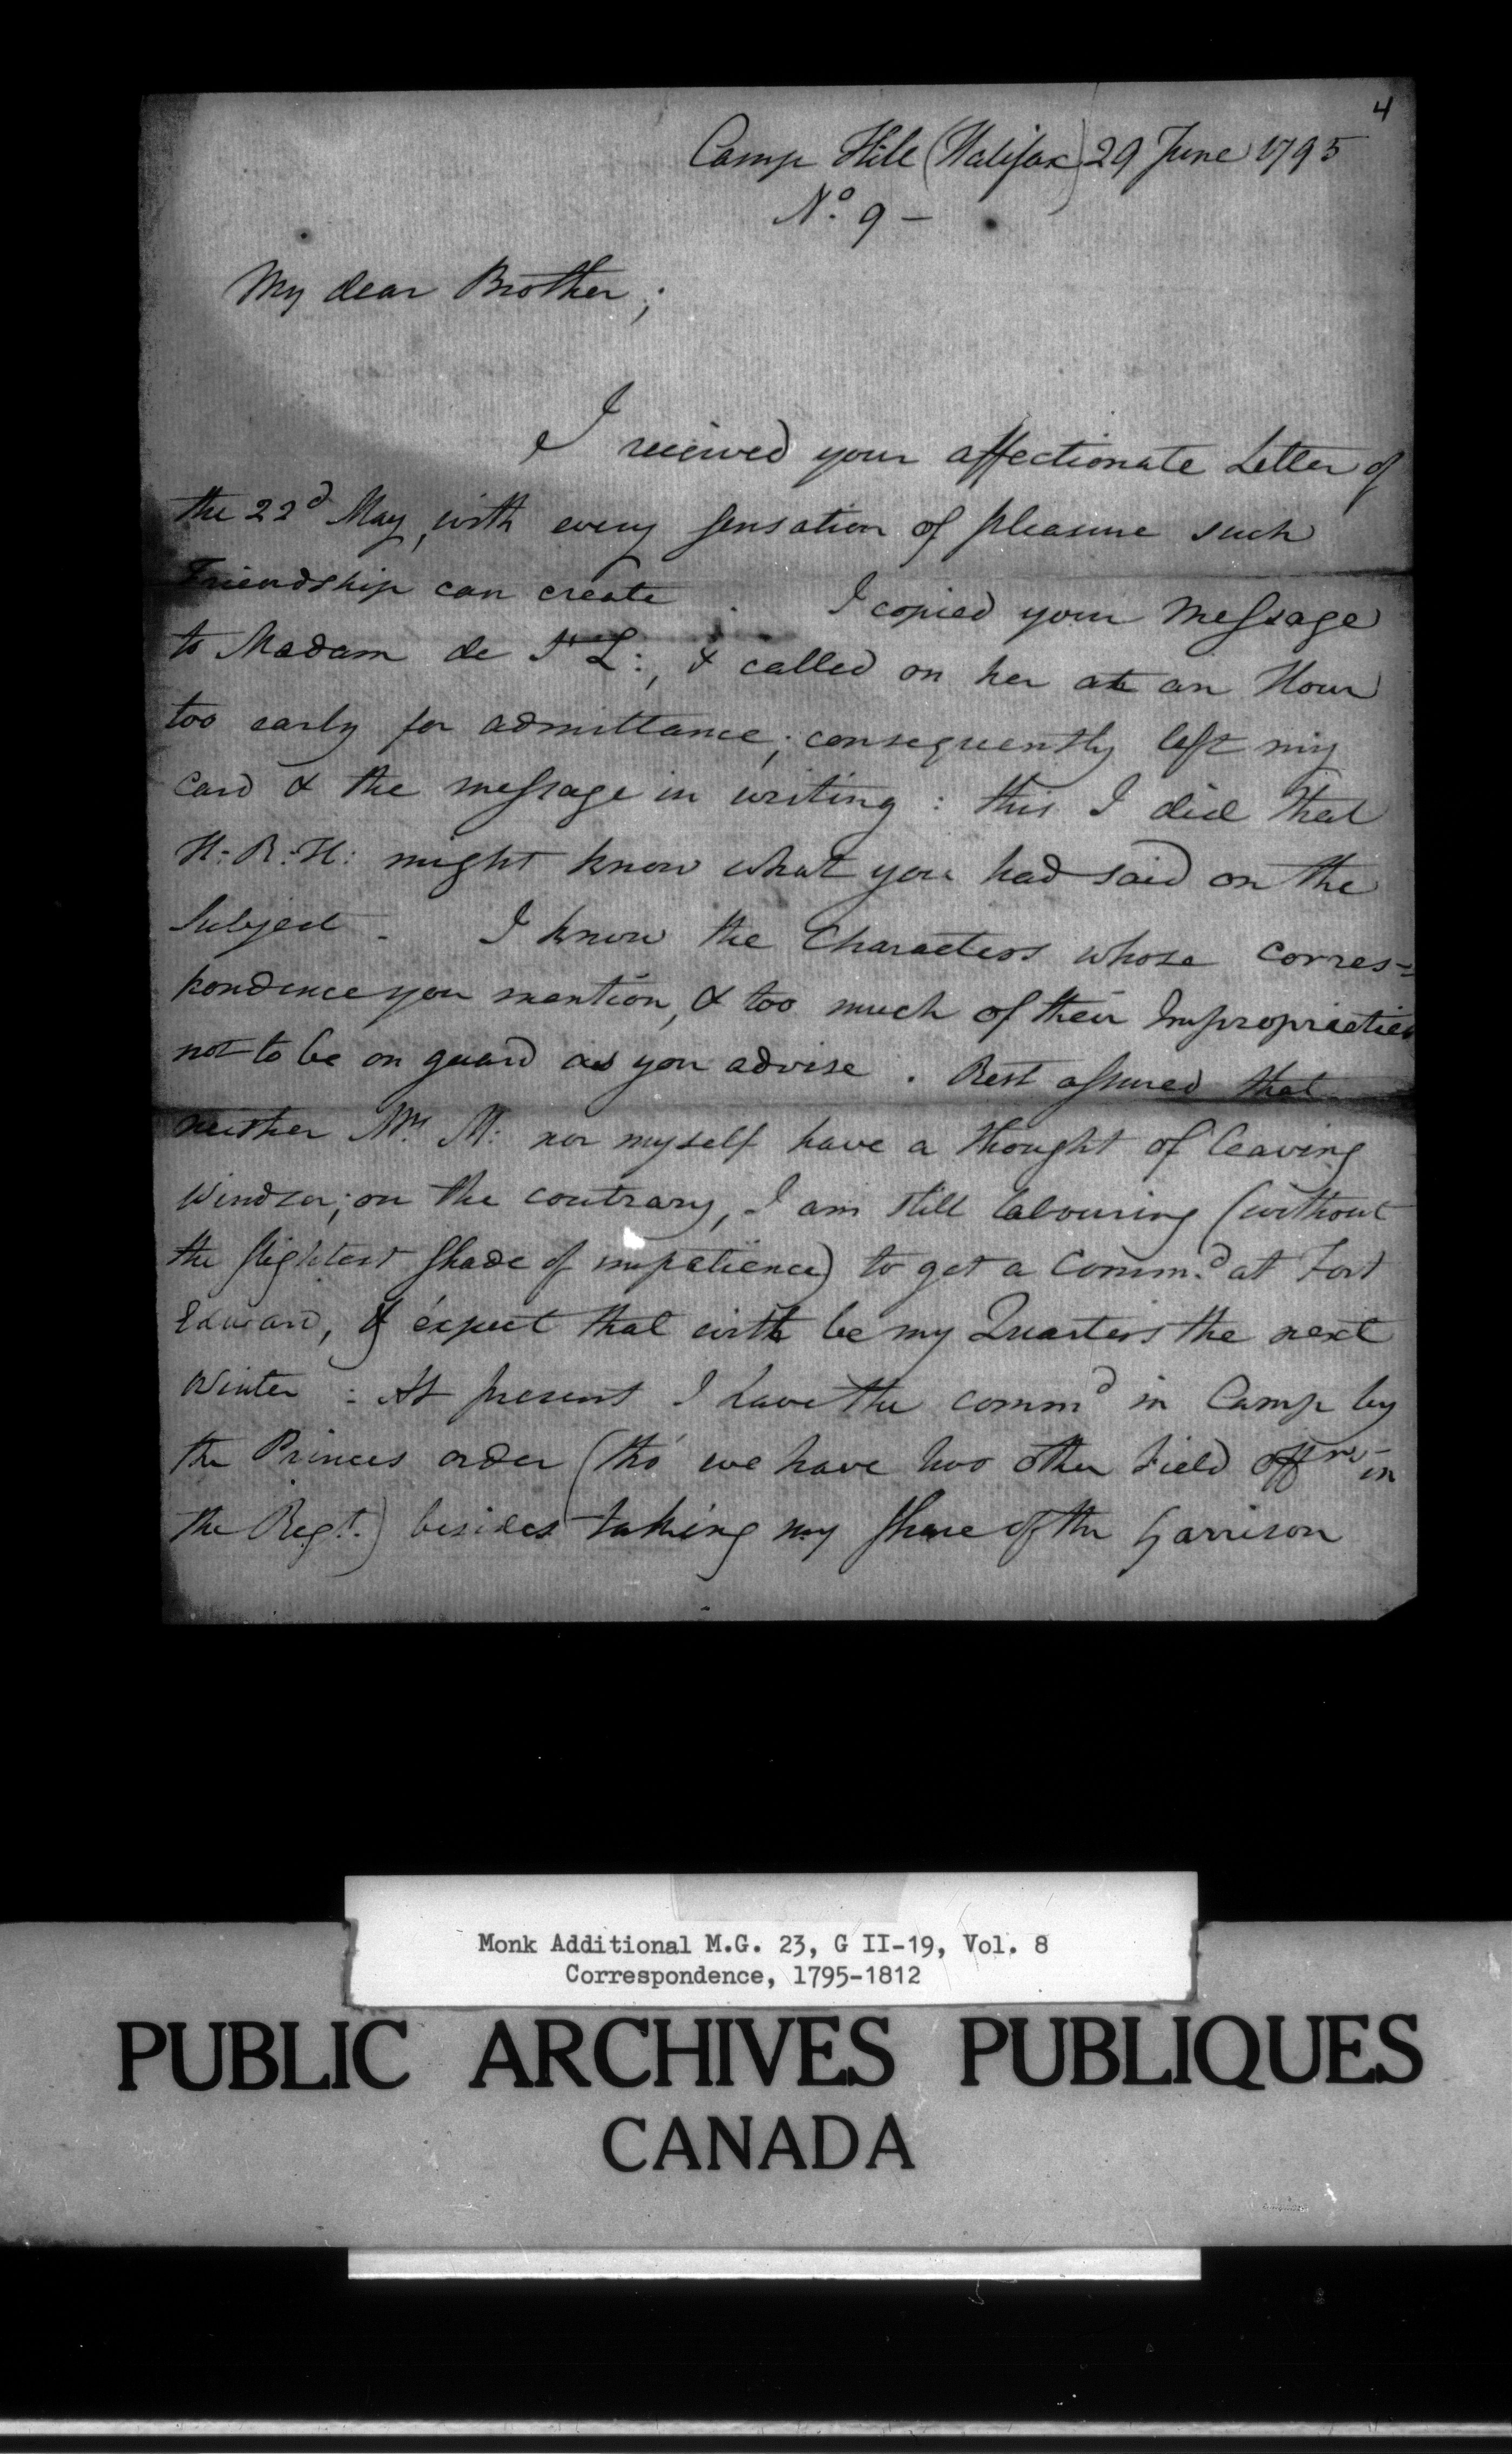 4
Camp Hill (Halifax) 29 June 1795
No. 9 —
My dear Brother;
I received your affectionate Letter of
the 22d May, with every sensation of pleasure such
Friendship can create . I copied your Message
to Madam de St L:, & called on her at an Hour
too early for admittance; consequently left my
card & the message in writing : this I did that
H:R:H: might know what you had said on the
Subject . I know the Characters whose corres=
pondence you mention, & too much of their Improprieties
not to be on guard as you advise . Rest assured that
neither Mrs M: nor myself have a thought of leaving
Windsor; on the contrary, I am still labouring (without
the slightest shade of impatience) to get a Comm.d at Fort
Edward, & expect that will be my Quarters the next
Winter : At present I have the commd in Camp by
the Princes order (tho' we have two other Field Offrs in
the Regt.) besides taking my share of the Garrison
Monk Additional M.G. 23, G II-19, Vol. 8
Correspondence, 1795-1812
PUBLIC ARCHIVES PUBLIQUES
CANADA